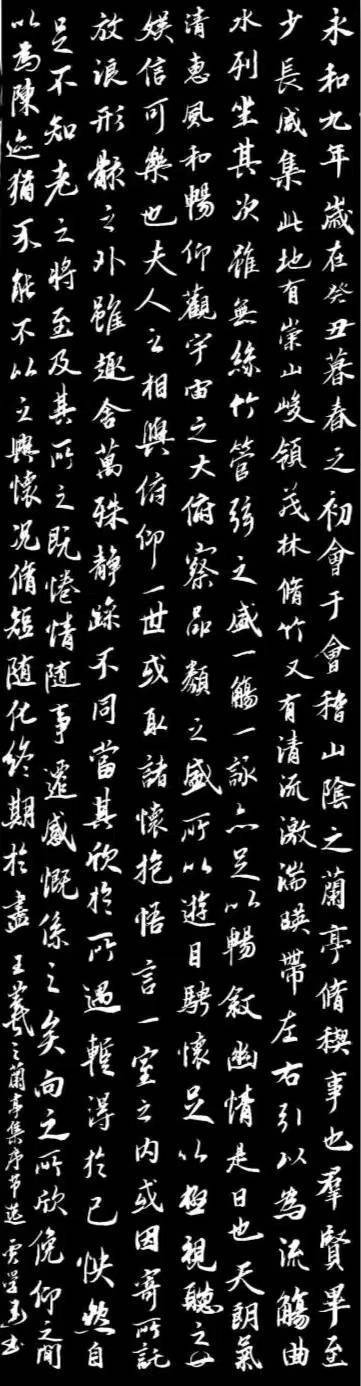 永和九年歲在癸丑暮春之初會于會稽山陰之蘭亭脩稧事也羣賢畢至
少長咸集此地有崇山峻領茂林脩竹又有清流激湍暎帶左右引以為流觴曲
水列坐其次雖無絲竹管弦之盛一觴一詠亦足以暢敘幽情是日也天朗氣
清惠風和暢仰觀宇宙之大俯察品類之盛所以遊目騁懷足以極視聽之
娛信可樂也夫人之相與俯仰一世或取諸懷抱悟言一室之內或因寄所託
放浪形骸之外雖趣舍萬殊靜躁不同當其欣於所遇暫得於己怏然自
足不知老之將至及其所之既惓情隨事遷感慨係之矣向之所欣俛仰之間
以為陳迹猶不能不以之興懷況脩短隨化終期於盡 王羲之蘭亭集序節選